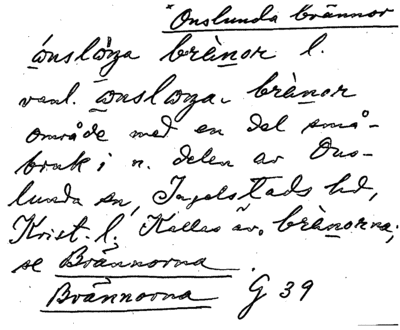 *Onslunda brännor
ónslòṉa brànor l.
vanl. onsloṉa. brànor
område med en del små-
bruk i n. delen av Ons-
lunda sn, Ingelstads hd,
Krist. l. Kallas äv. brànorna;
se Brännorna.
Brännorna G 39